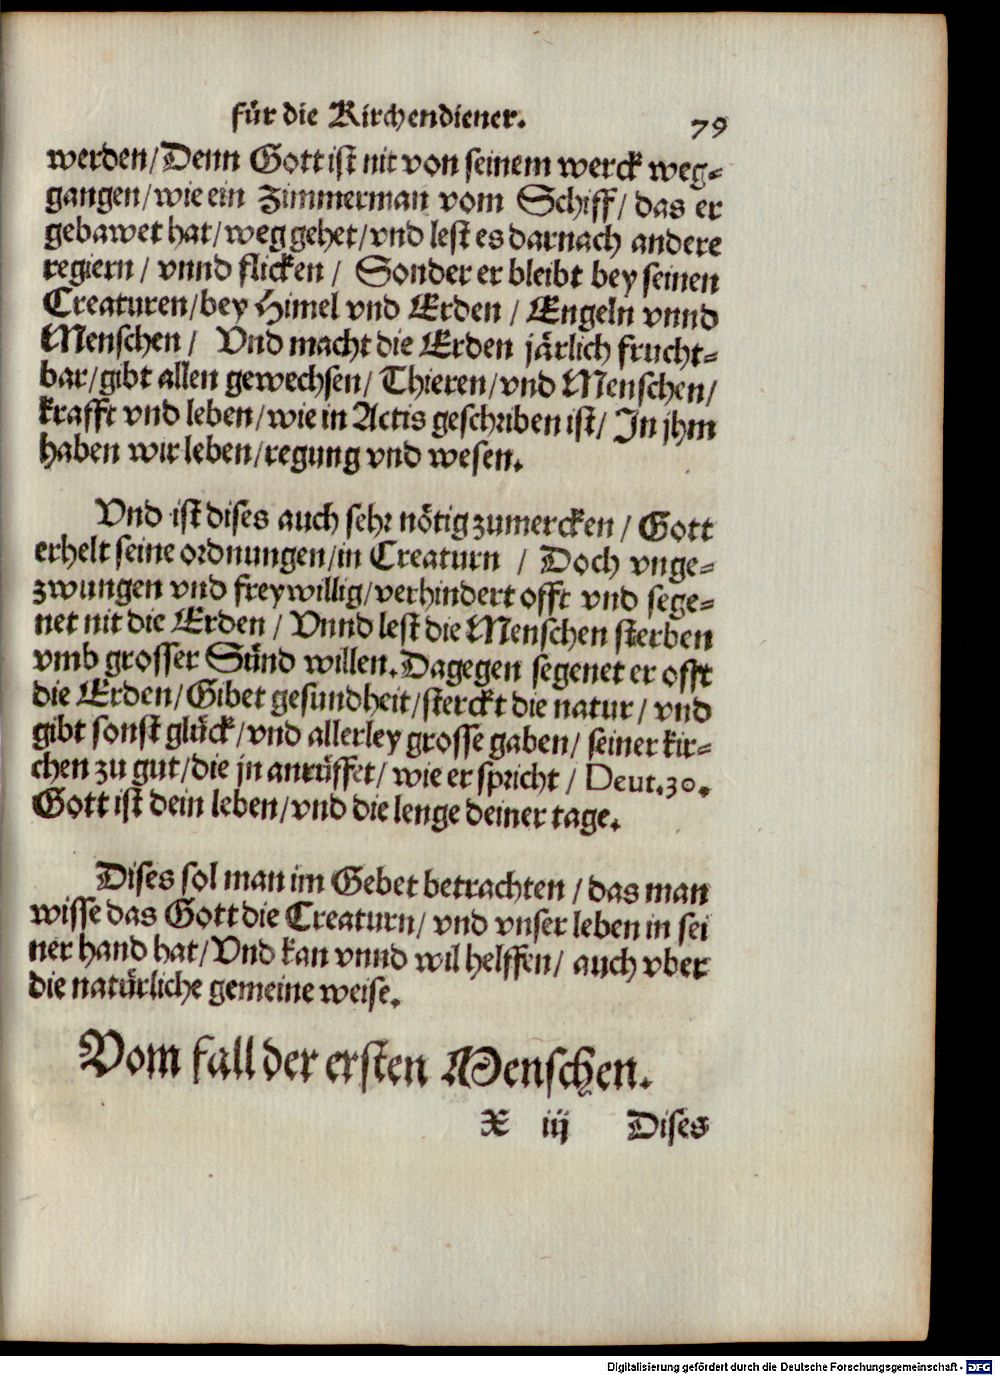 für die Kirchendiener. 79
werden/Denn Gott ist nit von seinem werck weg-
gangen/wie ein Zimmerman vom Schiff/ das er
gebawet hat/weg gehet/vnd lest es darnach andere
regiern / vnnd flicken / Sonder er bleibt bey seinen
Creaturen/bey Himel vnd Erden / Engeln vnnd
Menschen / Vnd macht die Erden järlich frucht-
bar/gibt allen gewechsen/ Thieren/vnd Menschen/
krafft vnd leben/wie in Actis geschriben ist/ In jhm
haben wir leben/regung vnd wesen.
Vnd ist dises auch sehr nötig zumercken / Gott
erhelt seine ordnungen/in Creaturn / Doch vnge-
zwungen vnd freywillig/verhindert offt vnd sege-
net nit die Erden / Vnnd lest die Menschen sterben
vmb grosser Sünd willen. Dagegen segenet er offt
die Erden/Gibet gesundheit/sterckt die natur/ vnd
gibt sonst glück/vnd allerley grosse gaben/ seiner kir-
chen zu gut/die jn anrüffet/ wie er spricht / Deut.30.
Gott ist dein leben/vnd die lenge deiner tage.
Dises sol man im Gebet betrachten / das man
wisse das Gott die Creaturn/ vnd vnser leben in sei
ner hand hat/Vnd kan vnnd wil helffen/ auch vber
die natürliche gemeine weise.
Vom fall der ersten Menschen.
X iij Dises
Digitalisierung gefördert durch die Deutsche Forschungsgemeinschaft - DFG